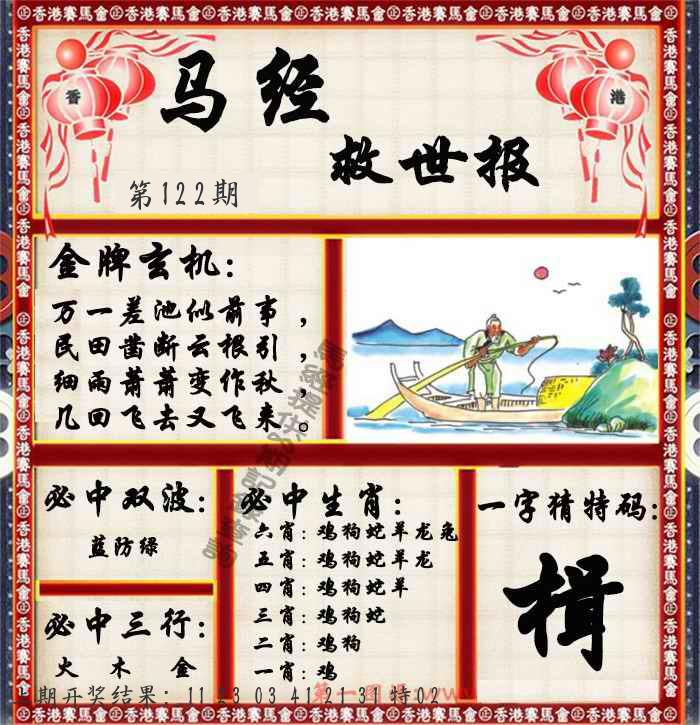 香港賽馬會
香 港
马经
救世报
第122期
金牌玄机:
万一差池似前事，
民田凿断云根引，
细雨萧萧变作秋，
几回飞去又飞来。
必中双波:
蓝防绿
必中三行:
火 木 金
必中生肖:
六肖:鸡狗蛇羊龙兔
五肖:鸡狗蛇羊龙
四肖:鸡狗蛇羊
三肖:鸡狗蛇
二肖:鸡狗
一肖:鸡
一字猜特码:
楫
期开奖结果: 11 23 03 41 21 31 特02